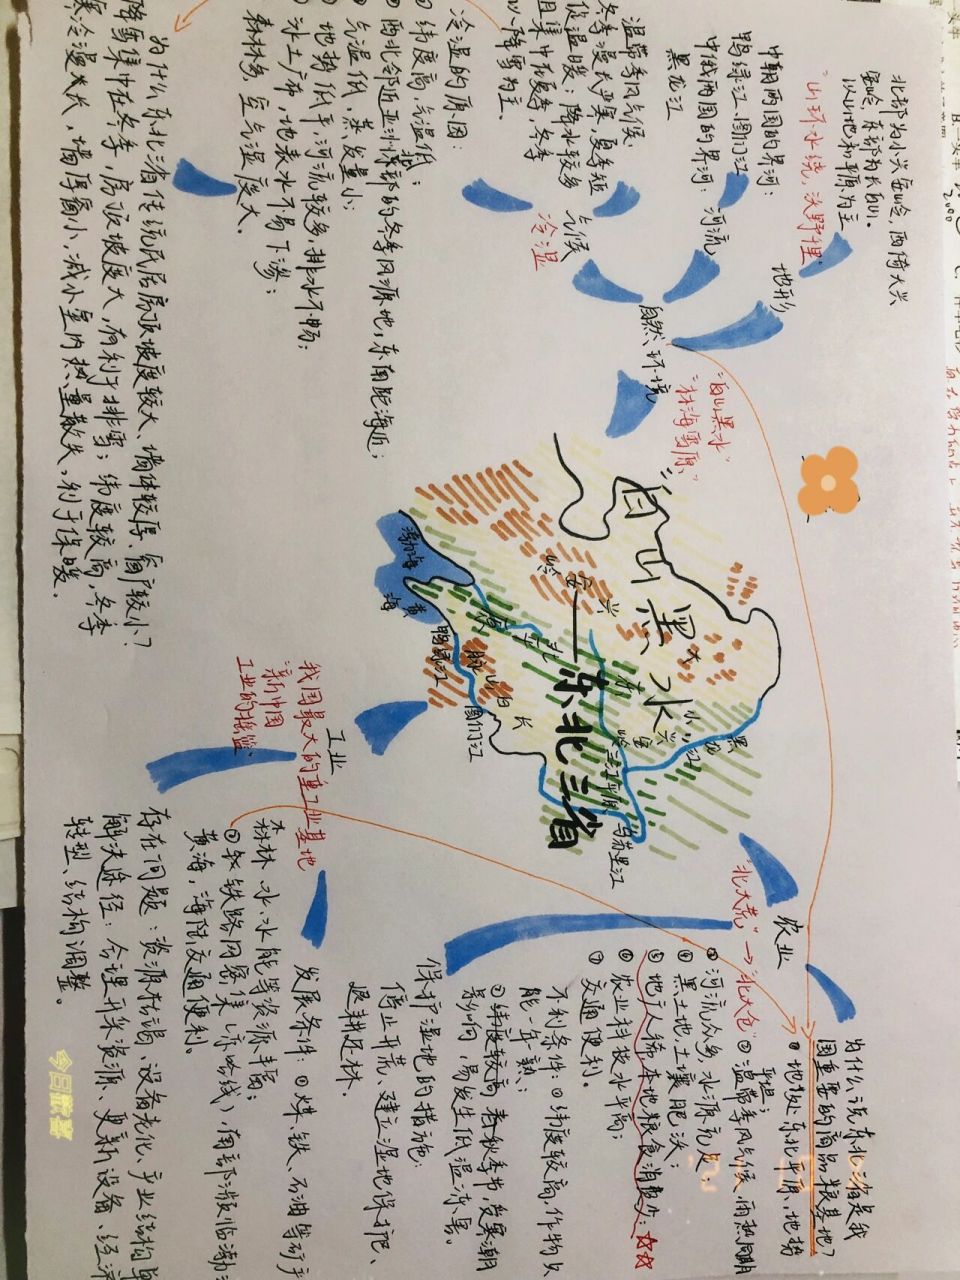 北部为小兴安岭，西隋大兴
安岭，东部为长白山。
以山地和平原为主
"山环水绕，沃野千里"
地形
中朝两国的界河：
鸭绿江、图们江
中俄两国的界河：
黑龙江
河流
温带季风气候
冬季漫长严寒，夏季短
促温暖；降水较多
且集中在夏季，冬季
以降雪为主。
气候
冷湿
自然环境
"白山黑水"
"林海雪原"
冷湿的原因：
①纬度高，气温低；
②西北邻近亚洲大陆部的冬季风源地，东南距海近；
气温低，蒸发量小；
地势低平，河流较多，排水不畅；
冻土广布，地表水不易下渗；
森林多，空气湿度大。
为什么东北三省传统民居屋顶坡度较大、墙体较厚、窗户较小？
降雪集中在冬季，房顶坡度大，有利于排雪；纬度较高，冬季
寒冷漫长，墙厚窗小，减小室内热量散失，利于保暖。
白山黑水
东北三省
渤海
黄海
大兴安岭
小兴安岭
长白山脉
东北平原
三江平原
鸭绿江
图们江
黑龙江
乌苏里江
农业
"北大荒"→"北大仓"
为什么说东北三省是我
国重要的商品粮基地？
①地处东北平原，地势
平坦；
②温带季风气候，雨热同期
③河流众多，水源充足
④黑土地，土壤肥沃；
⑤地广人稀，本地粮食消费少；☆☆
⑥农业科技水平高；
⑦交通便利。
不利条件：①纬度较高，作物只
能一年一熟；
②纬度较高，春秋季节，受寒潮
影响，易发生低温冻害。
保护湿地的措施：
停止开荒、建立湿地保护区、
退耕还林。
工业
我国最大的重工业基地
新中国
工业的摇篮
发展条件：①煤、铁、石油等矿产
森林、水、水能等资源丰富；
②铁路网密集（京哈线），南部海域临渤海
黄海，海陆交通便利。
存在问题：资源枯竭、设备老化、产业结构单
解决途径：合理开采资源、更新设备、经济
转型、结构调整。
今日歌者